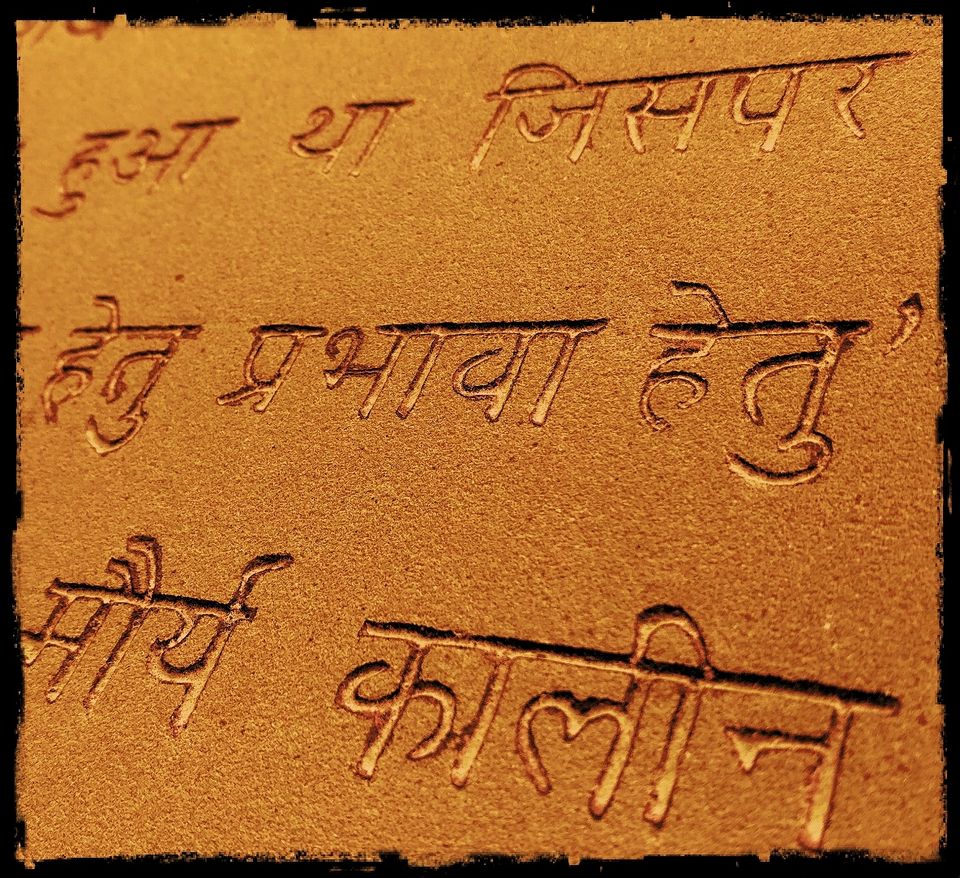 हुआ था जिसपर
हेतु प्रभावा हेतु’
मौर्य कालीन